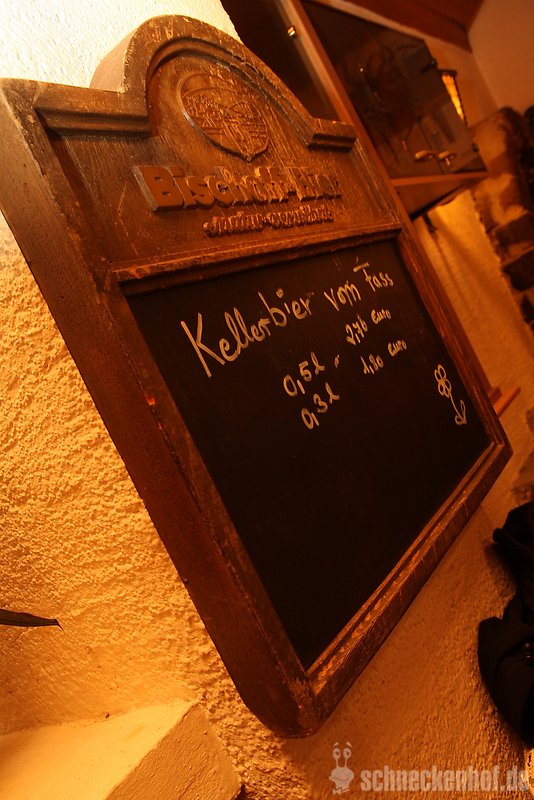 Bischoff-Bier
Kellerbier vom Fass
0,5l - 2,70 euro
0,3l 1,80 euro
schneckenhof.de